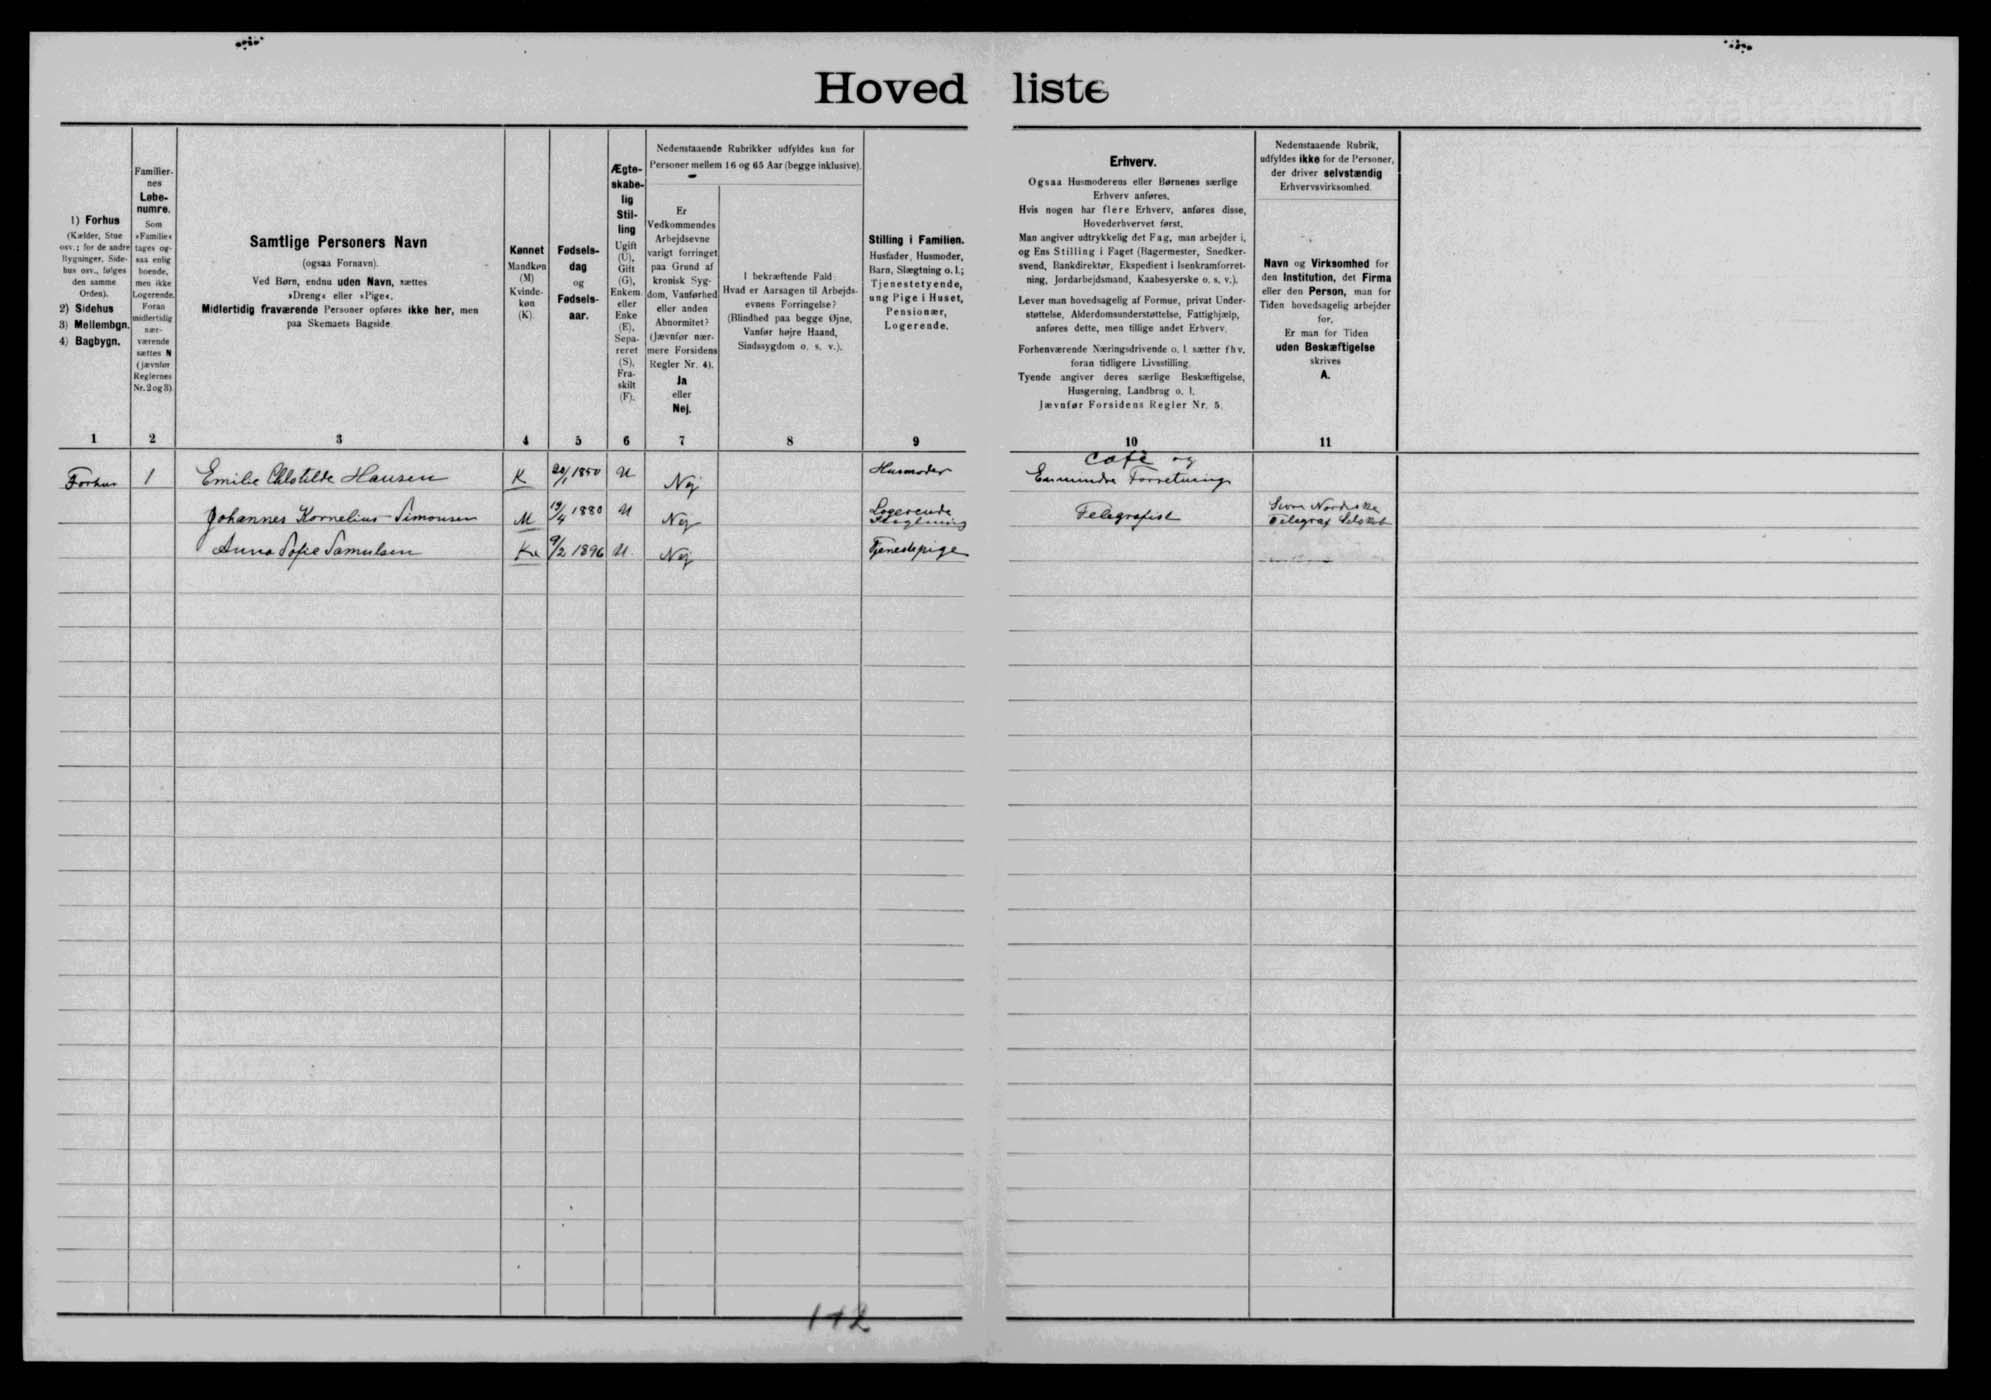 Hovedliste
1) Forhus
(Kælder, Stue
osv.; for de andre
Bygninger, Side-
hus osv., følges
den samme
Orden).
2) Sidehus
3) Mellembgn.
4) Bagbygn.
Familier-
nes
Løbe-
numre.
Som
»Familie«
tages og-
saa enlig
boende,
men ikke
Logerende.
Foran
midlertidig
nær-
værende
sættes N
(jævnfør
Reglernes
Nr. 2 og 3)
Samtlige Personers Navn
(ogsaa Fornavn).
Ved Børn, endnu uden Navn, sættes
»Dreng« eller »Pige«.
Midlertidig fraværende Personer opføres ikke her, men
paa Skemaets Bagside.
Kønnet
Mandkøn
(M)
Kvinde-
køn
(K).
Fødsels-
dag
og
Fødsels-
aar.
Ægte-
skabe-
lig
Stil-
ling
Ugift
(U),
Gift
(G),
Enkem.
eller
Enke
(E),
Sepa-
reret
(S),
Fra-
skilt
(F).
Nedenstaaende Rubrikker udfyldes kun for
Personer mellem 16 og 65 Aar (begge inklusive).
Er
Vedkommendes
Arbejdsevne
varigt forringet
paa Grund af
kronisk Syg-
dom, Vanførhed
eller anden
Abnormitet?
(Jævnfør nær-
mere Forsidens
Regler Nr. 4).
Ja
eller
Nej.
I bekræftende Fald:
Hvad er Aarsagen til Arbejds-
evnens Forringelse?
(Blindhed paa begge Øjne,
Vanfør højre Haand,
Sindssygdom o. s. v.).
Stilling i Familien.
Husfader, Husmoder,
Barn, Slægtning o. l.;
Tjenestetyende,
ung Pige i Huset,
Pensionær,
Logerende.
Erhverv.
Ogsaa Husmoderens eller Børnenes særlige
Erhverv anføres.
Hvis nogen har flere Erhverv, anføres disse,
Hovederhvervet først.
Man angiver udtrykkelig det Fag, man arbejder i,
og Ens Stilling i Faget (Bagermester, Snedker-
svend, Bankdirektør, Ekspedient i Isenkramforret-
ning, Jordarbejdsmand, Kaabesyerske o. s. v.).
Lever man hovedsagelig af Formue, privat Under-
støttelse, Alderdomsunderstøttelse, Fattighjælp,
anføres dette, men tillige andet Erhverv.
Forhenværende Næringsdrivende o. l. sætter fhv.
foran tidligere Livsstilling.
Tyende angiver deres særlige Beskæftigelse,
Husgerning, Landbrug o. l.
Jævnfør Forsidens Regler Nr. 5.
Nedenstaaende Rubrik,
udfyldes ikke for de Personer,
der driver selvstændig
Erhvervsvirksomhed.
Navn og Virksomhed for
den Institution, det Firma
eller den Person, man for
Tiden hovedsagelig arbejder
for.
Er man for Tiden
uden Beskæftigelse
skrives
A.
1 2 3 4 5 6 7 8 9 10 11
Forhus 1 Emilie Hansen K 20/1 1850 U Nej Husmoder Café og
Forretning
Johannes Kornelius Simonsen M 19/4 1880 U Nej Logerende Telegrafist Store Nordiske
Telegraf Selskab
Anna Sofie Samulsen K 9/2 1896 U. Nej Tjenestepige
112